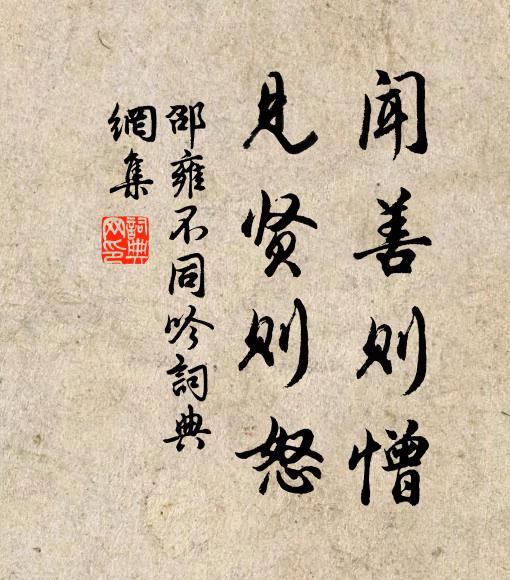 闻善则憎
见贤则怒
邵雍不同吟詞典
網集
詞典
网印